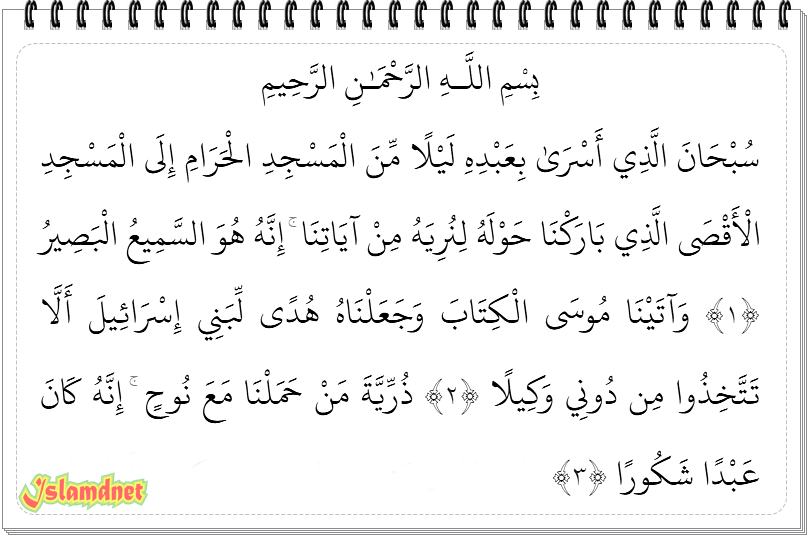 بِسْمِ اللَّـهِ الرَّحْمَـٰنِ الرَّحِيمِ
سُبْحَانَ الَّذِي أَسْرَىٰ بِعَبْدِهِ لَيْلًا مِّنَ الْمَسْجِدِ الْحَرَامِ إِلَى الْمَسْجِدِ
الْأَقْصَى الَّذِي بَارَكْنَا حَوْلَهُ لِنُرِيَهُ مِنْ آيَاتِنَا ۚ إِنَّهُ هُوَ السَّمِيعُ الْبَصِيرُ
﴿١﴾ وَآتَيْنَا مُوسَى الْكِتَابَ وَجَعَلْنَاهُ هُدًى لِّبَنِي إِسْرَائِيلَ أَلَّا
تَتَّخِذُوا مِن دُونِي وَكِيلًا ﴿٢﴾ ذُرِّيَّةَ مَنْ حَمَلْنَا مَعَ نُوحٍ ۚ إِنَّهُ كَانَ
عَبْدًا شَكُورًا ﴿٣﴾
Islamdnet